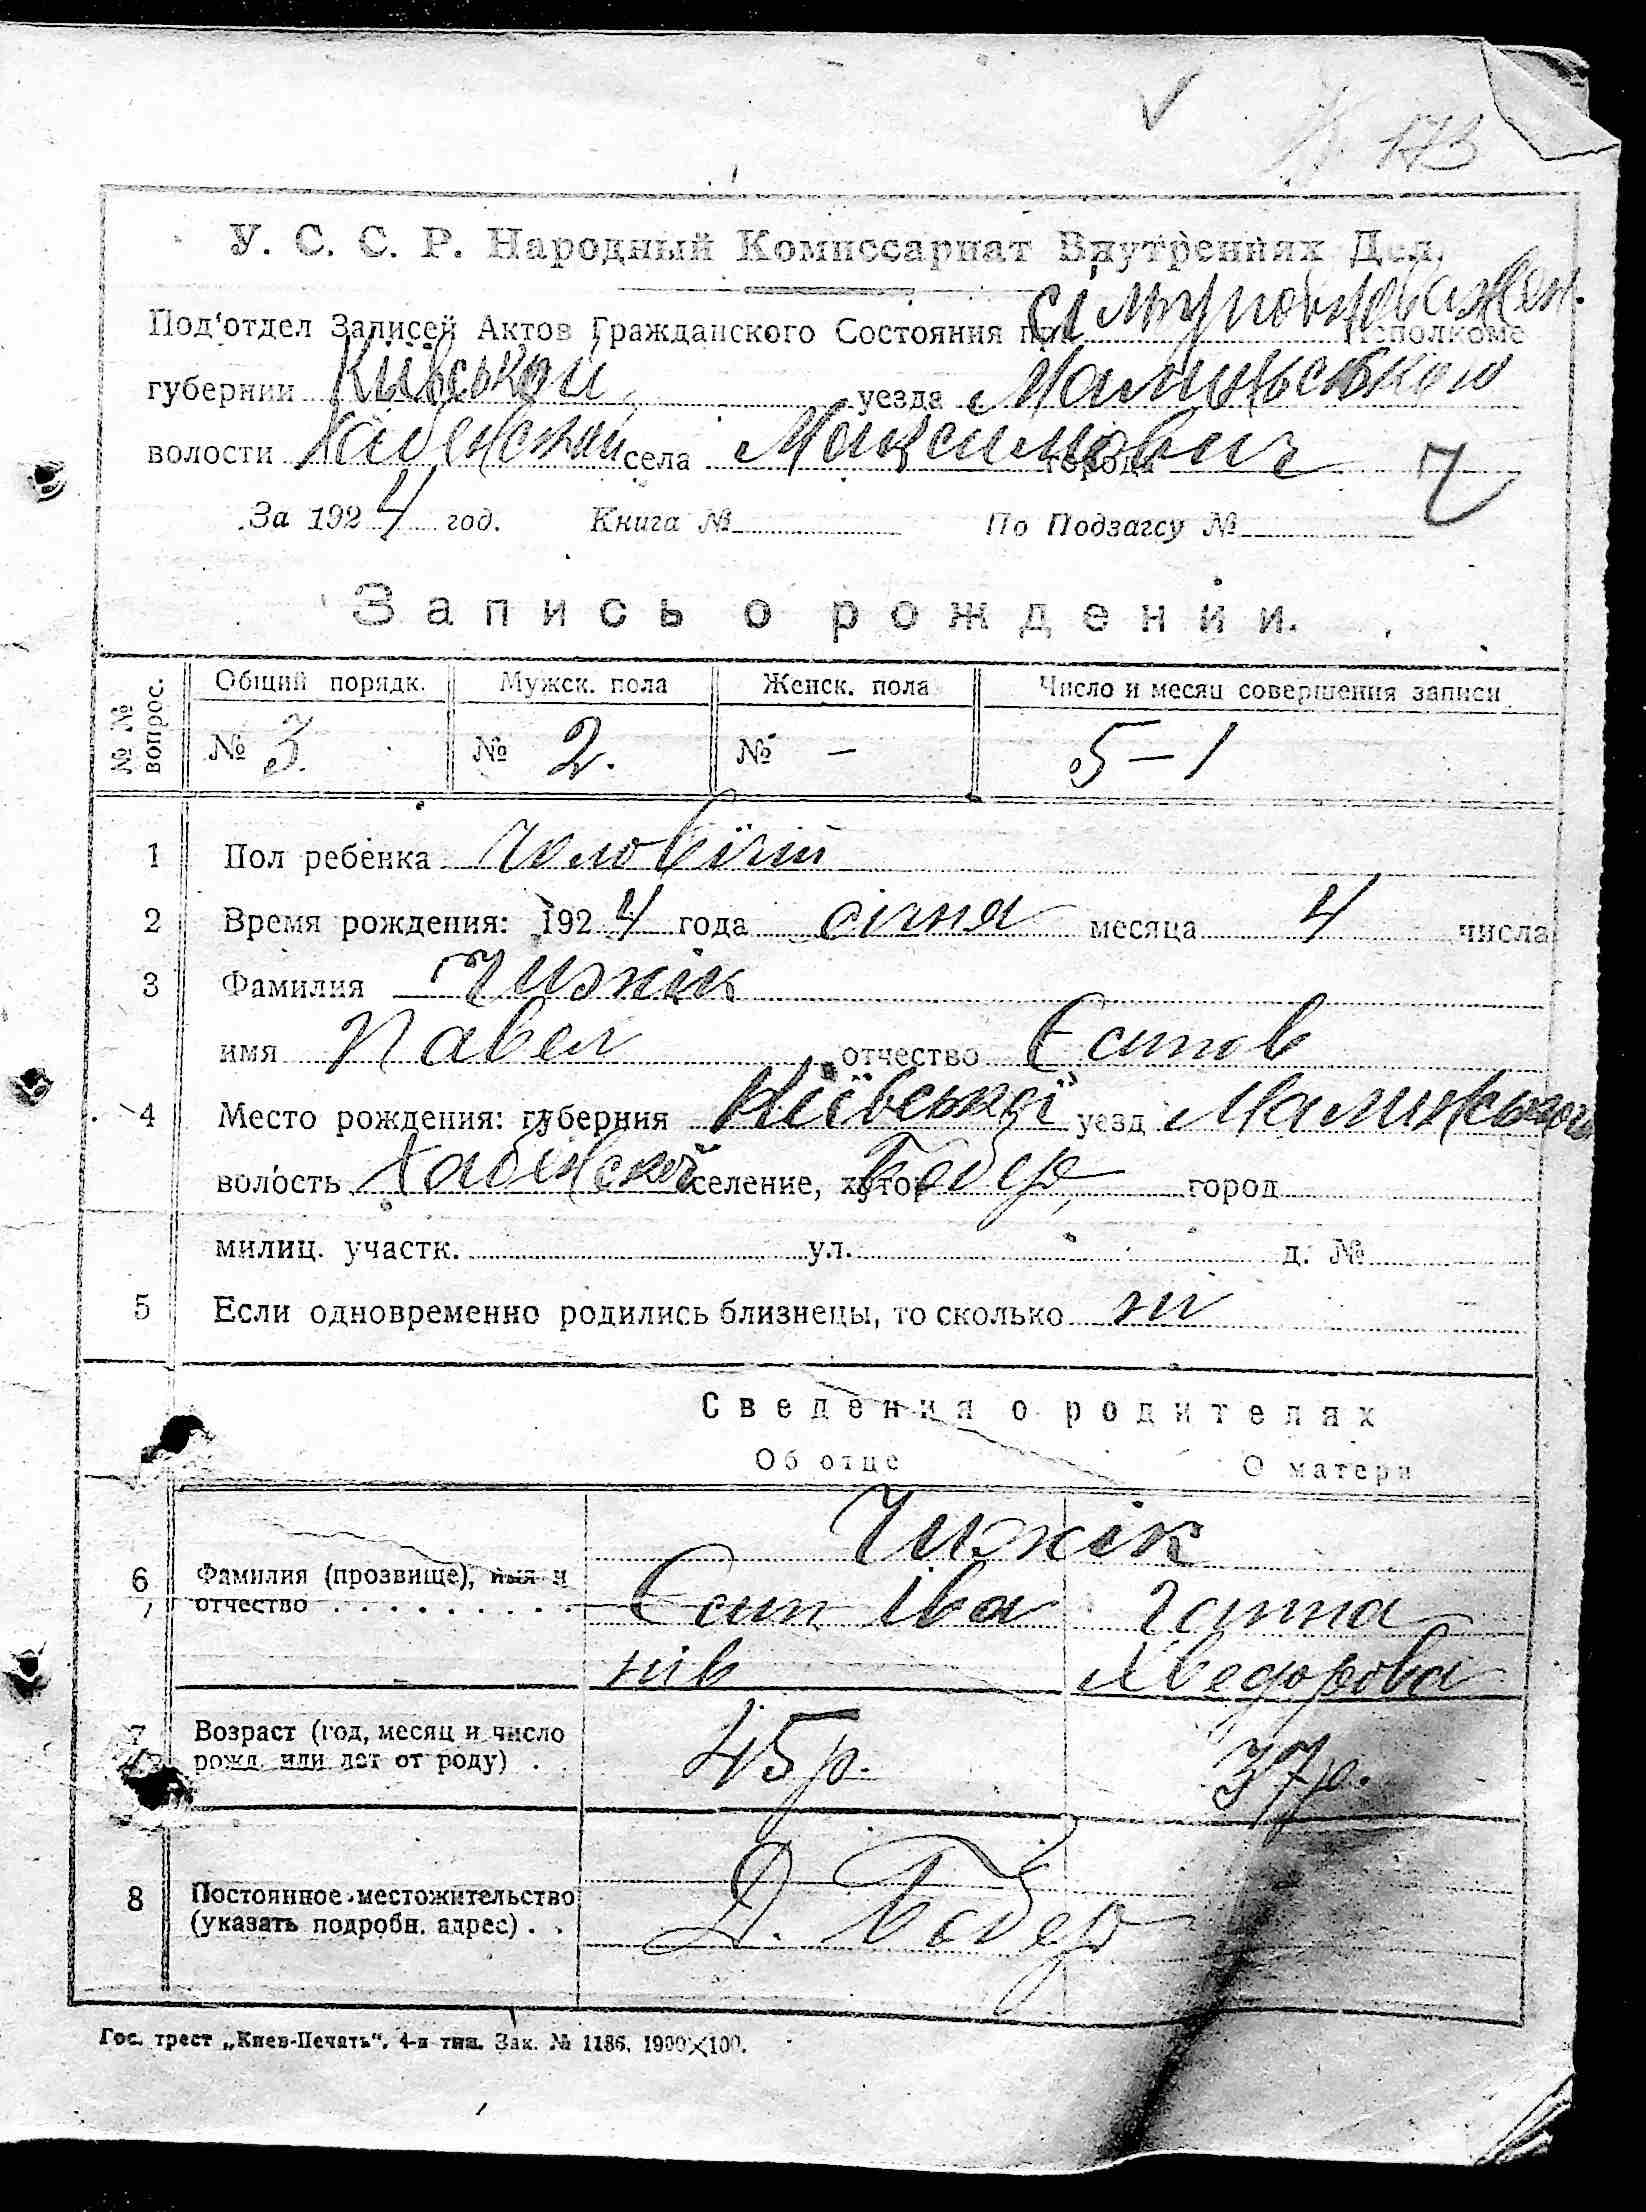 № 173
У. С. С. Р. Народный Комиссариат Внутренних Дел.
Под'отдел Записей Актов Гражданского Состояния при Исполкоме
губернии Київської уезда
волости села Максимович города ч
За 1924 год. Книга № По Подзагсу №
Запись о рождении.
№№ вопрос. Общий порядк. Мужск. пола Женск. пола Число и месяц совершения записи
№ 3. № 2. № – 5–1
1 Пол ребенка Чоловічій
2 Время рождения: 1924 года січня месяца 4 числа
3 Фамилия Чижік
имя Павел отчество Єсипов
4 Место рождения: губерния Київської уезд
волость Хабенской селение, хутор Бобер город
милиц. участк. ул. д. №
5 Если одновременно родились близнецы, то сколько ні
Сведения о родителях
Об отце О матери
Чижік
6 Фамилия (прозвище), имя и отчество Єсип Іва Ганна
нів Хведорова
7 Возраст (год, месяц и число рожд. или лет от роду) 45 р. 37 р.
8 Постоянное местожительство (указать подробн. адрес) Д. Бобер
Гос. трест „Киев-Печать“. 4-я тип. Зак. № 1186. 1900×100.